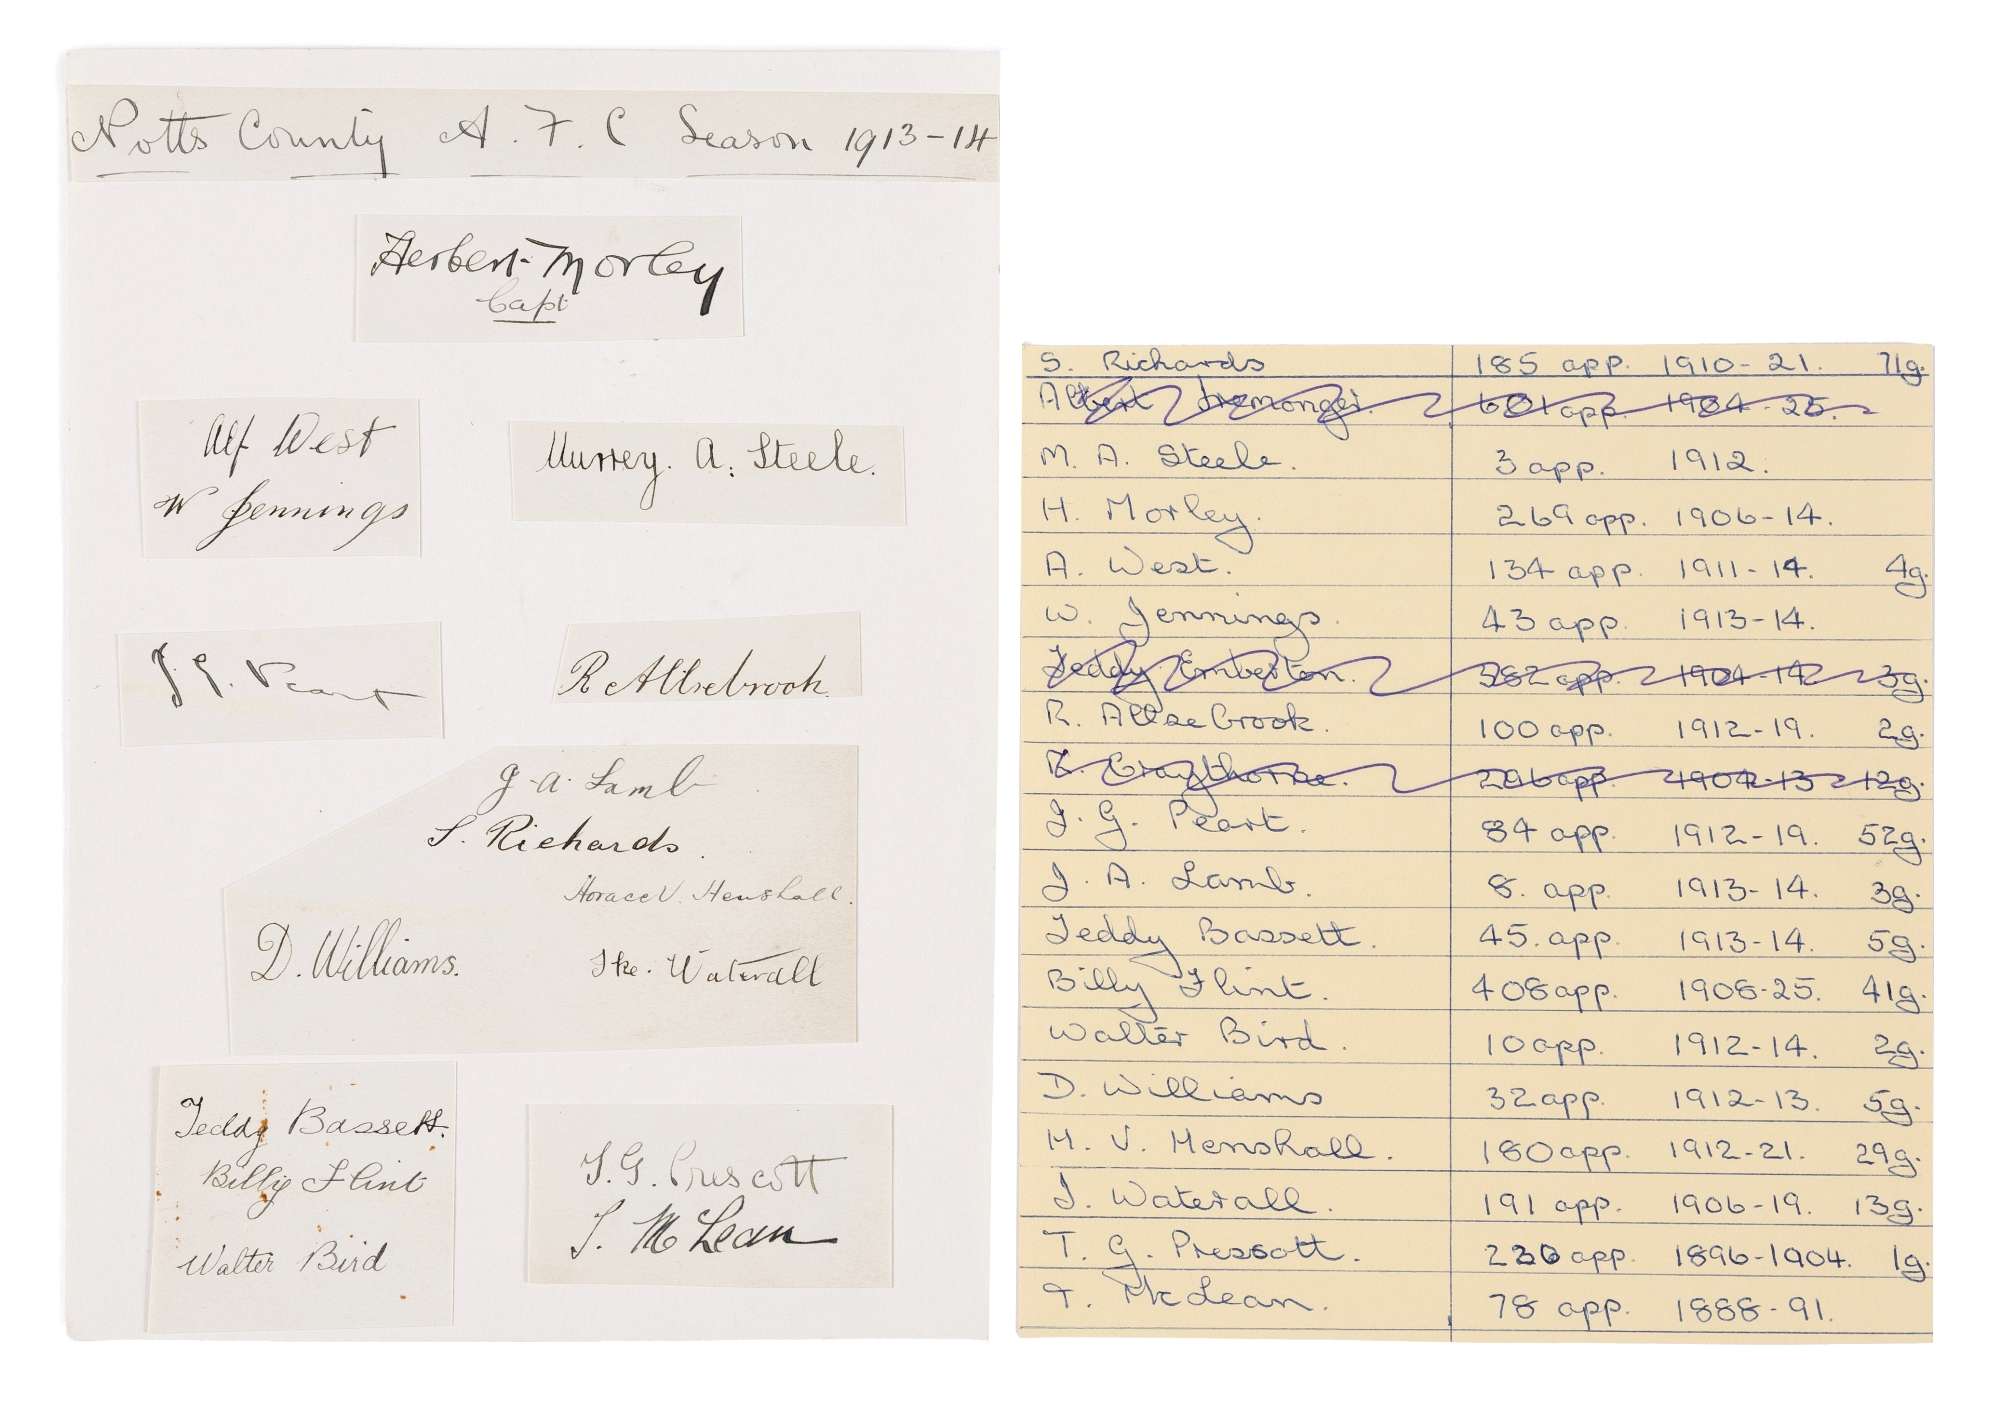 Notts County A. F. C Season 1913-14
Herbert Morley
Capt
Alf West
W Jennings
Murrey. A. Steele.
J. G. Peart
R Allsebrook.
J. A. Lamb
S. Richards.
Horace V. Henshall.
D. Williams.
Ike. Waterall
Teddy Bassett.
Billy Flint
Walter Bird
T. G. Prescott
T. McLean
S. Richards 185 app. 1910-21. 71g.
Albert Iremonger. 601 app. 1904-25.
M. A. Steele. 3 app. 1912.
H. Morley. 269 app. 1906-14.
A. West. 134 app. 1911-14. 4g.
W. Jennings. 43 app. 1913-14.
Teddy Emberton. 382 app. 1904-14 3g.
R. Allsebrook. 100 app. 1912-19. 2g.
Craythorne. 296 app 1904-13 12g.
J. G. Peart. 84 app. 1912-19. 52g.
J. A. Lamb. 8. app. 1913-14. 3g.
Teddy Bassett. 45. app. 1913-14. 5g.
Billy Flint. 408 app. 1908-25. 41g.
Walter Bird. 10 app. 1912-14. 2g.
D. Williams 32 app. 1912-13. 5g.
H. V. Henshall. 180 app. 1912-21. 29g.
I. Waterall. 191 app. 1906-19. 13g.
T. G. Prescott. 230 app. 1896-1904. 1g.
T. McLean. 78 app. 1888-91.